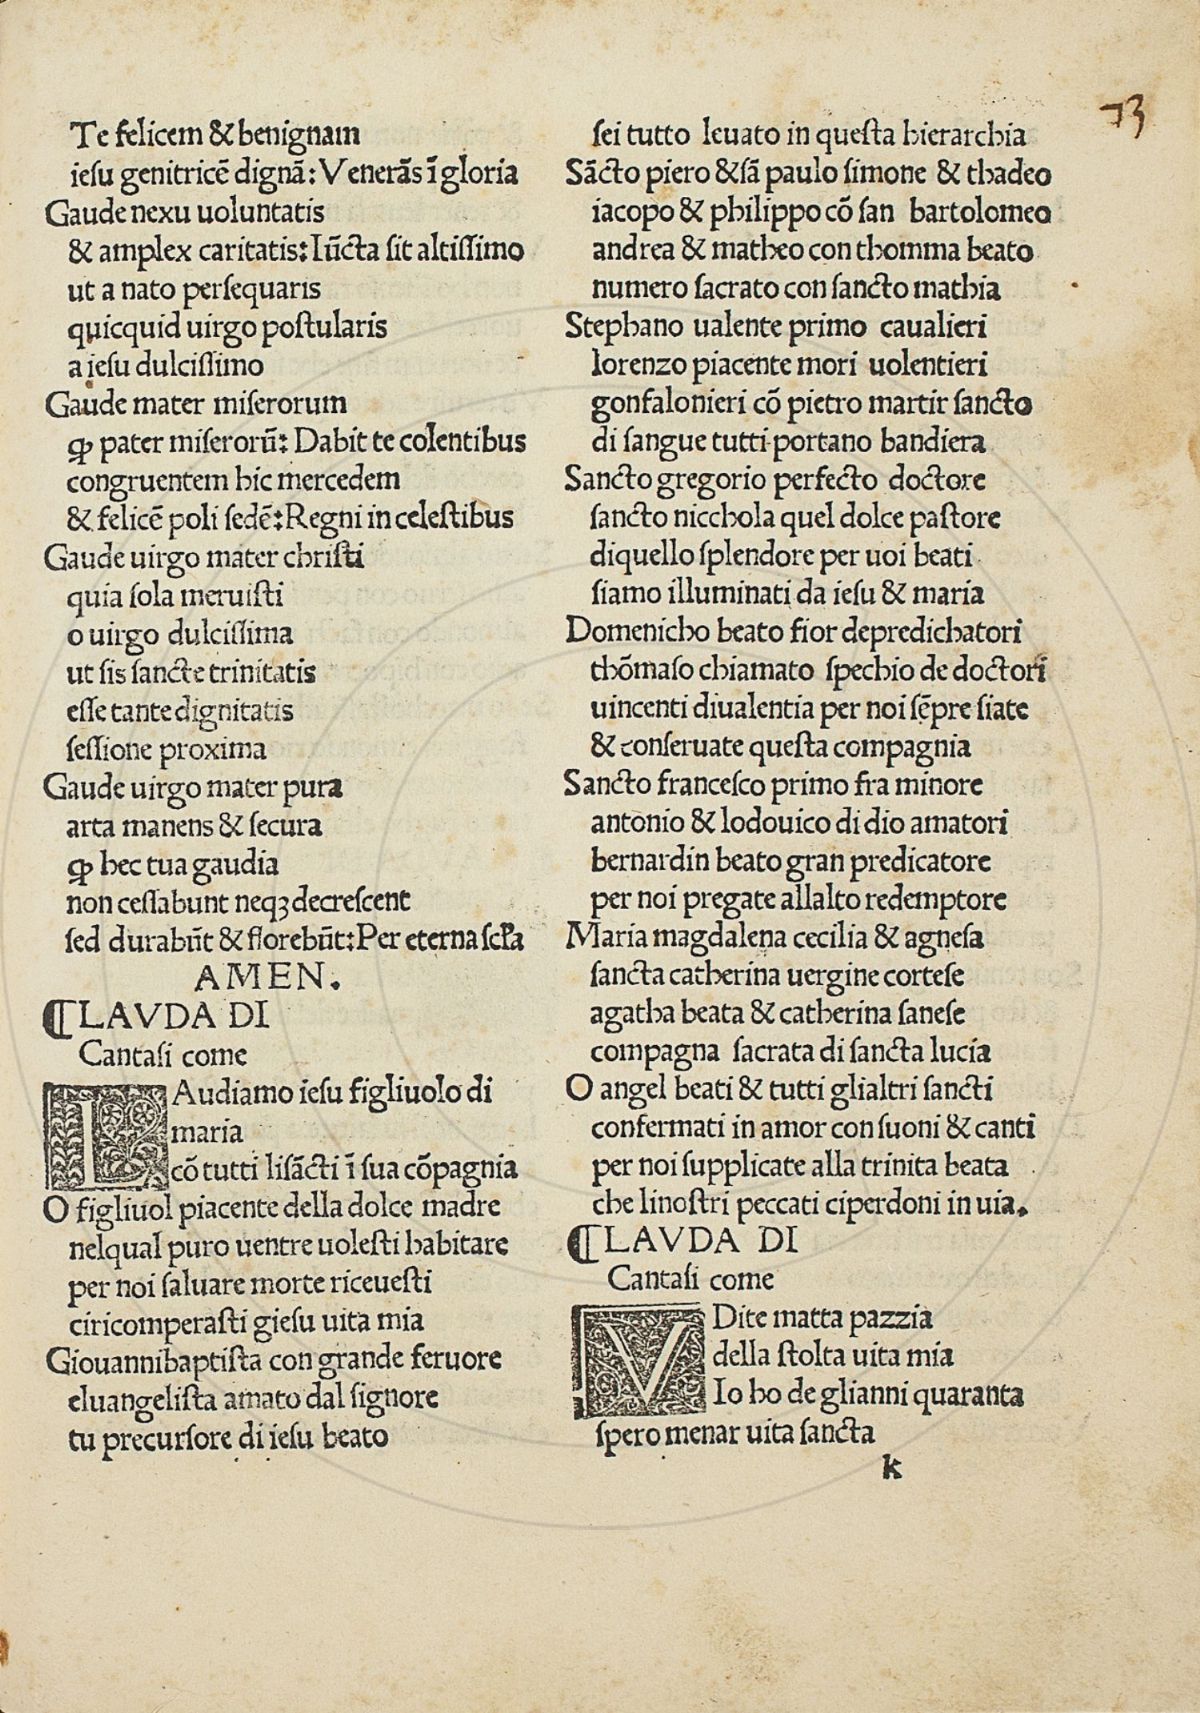 73
Te felicem & benignam
iesu genitricē dignā: Venerās ī gloria
Gaude nexu uoluntatis
& amplex caritatis: Iūcta sit altissimo
ut a nato persequaris
quicquid uirgo postularis
a iesu dulcissimo
Gaude mater miserorum
ꝙ pater miserorū: Dabit te colentibus
congruentem hic mercedem
& felicē poli sedē: Regni in celestibus
Gaude uirgo mater christi
quia sola meruisti
o uirgo dulcissima
ut sis sancte trinitatis
esse tante dignitatis
sessione proxima
Gaude uirgo mater pura
arta manens & secura
ꝙ hec tua gaudia
non cessabunt neqꝫ decrescent
sed durabūt & florebūt: Per eterna scła
AMEN.
¶ LAVDA DI
Cantasi come
LAudiamo iesu figliuolo di
maria
cō tutti lisācti ī sua cōpagnia
O figliuol piacente della dolce madre
nelqual puro uentre uolesti habitare
per noi saluare morte riceuesti
ciricomperasti giesu uita mia
Giouannibaptista con grande feruore
eluangelista amato dal signore
tu precursore di iesu beato
sei tutto leuato in questa hierarchia
Sācto piero & sā paulo simone & thadeo
iacopo & philippo cō san bartolomeo
andrea & matheo con thomma beato
numero sacrato con sancto mathia
Stephano ualente primo caualieri
lorenzo piacente mori uolentieri
gonfalonieri cō pietro martir sancto
di sangue tutti portano bandiera
Sancto gregorio perfecto doctore
sancto nicchola quel dolce pastore
diquello splendore per uoi beati
siamo illuminati da iesu & maria
Domenicho beato fior depredichatori
thōmaso chiamato spechio de doctori
uincenti diualentia per noi sēpre siate
& conseruate questa compagnia
Sancto francesco primo fra minore
antonio & lodouico di dio amatori
bernardin beato gran predicatore
per noi pregate allalto redemptore
Maria magdalena cecilia & agnesa
sancta catherina uergine cortese
agatha beata & catherina sanese
compagna sacrata di sancta lucia
O angel beati & tutti glialtri sancti
confermati in amor con suoni & canti
per noi supplicate alla trinita beata
che linostri peccati ciperdoni in uia.
¶ LAVDA DI
Cantasi come
VDite matta pazzia
della stolta uita mia
Io ho de glianni quaranta
spero menar uita sancta
k